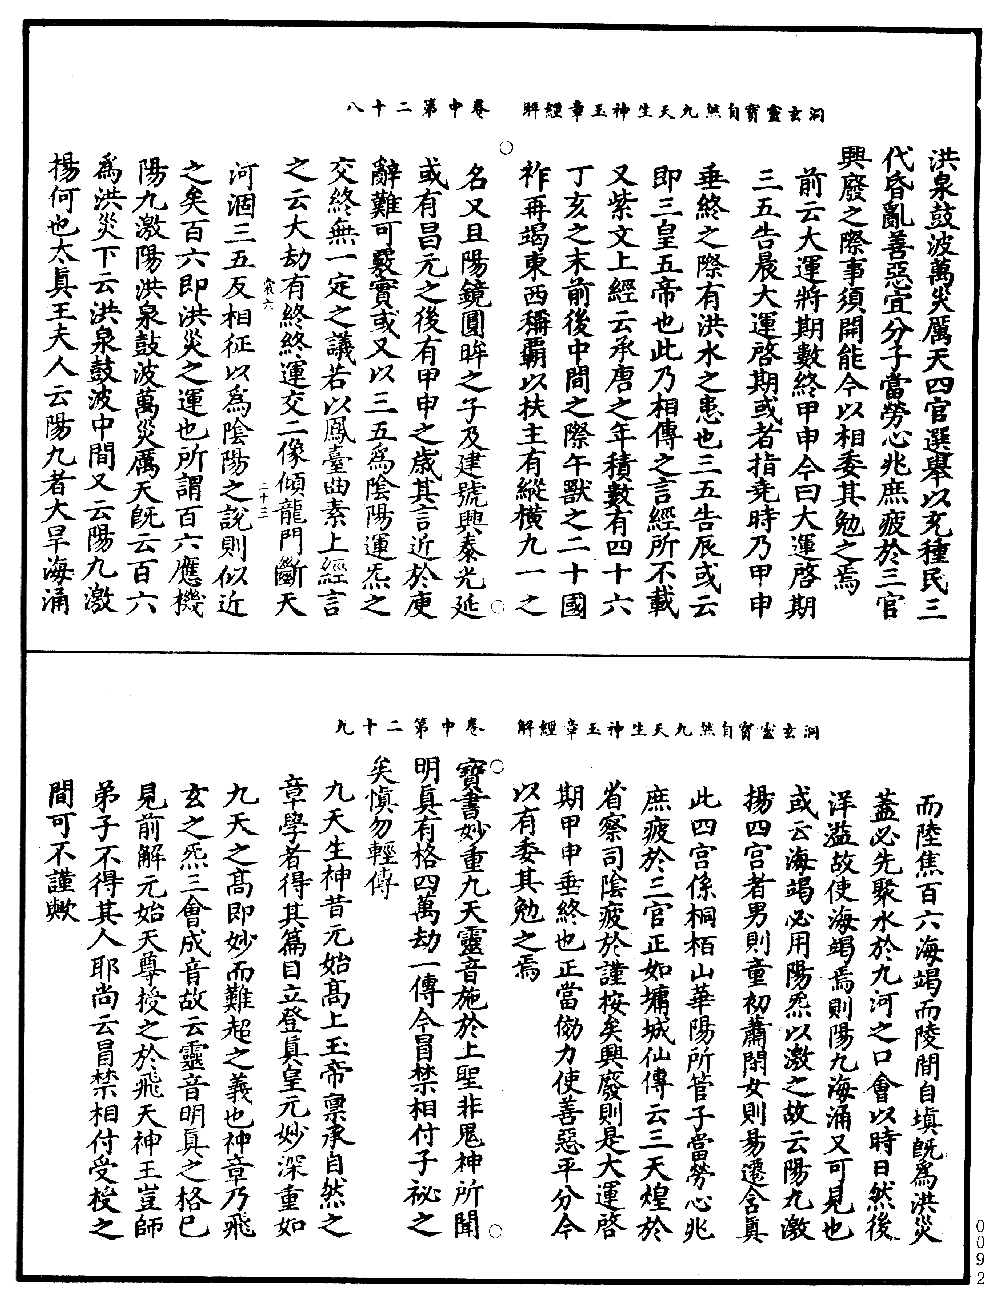 洞玄靈寶自然九天生神玉章經解　卷中第二十八
洪泉鼓波萬災厲天四官選舉以充種民三
代昏亂善惡宜分子當勞心兆庶疲於三官
興廢之際事須開能今以相委其勉之焉
前云大運將期數終甲申今曰大運啓期
三五告晨大運啓期或者指堯時乃甲申
垂終之際有洪水之患也三五告辰或云
即三皇五帝也此乃相傳之言經所不載
又紫文上經云承唐之年積數有四十六
丁亥之末前後中間之際午獸之二十國
祚再竭東西稱霸以扶主有縱橫九一之
名又且陽鏡圓眸之子及建號興泰光延
或有昌元之後有甲申之歲其言近於庾
辭難可覈實或又以三五爲陰陽運炁之
交終無一定之議若以鳳臺曲素上經言
之云大劫有終終運交二像傾龍門斷天
裳六　二十三
河涸三五反相征以爲陰陽之說則似近
之矣百六即洪災之運也所謂百六應機
陽九激陽洪泉鼓波萬災厲天旣云百六
爲洪災下云洪泉鼓波中間又云陽九激
揚何也太真王夫人云陽九者大旱海涌
洞玄靈寶自然九天生神玉章經解　卷中第二十九
而陸焦百六海竭而陵間自塡旣爲洪災
蓋必先聚水於九河之口會以時日然後
洋溢故使海竭焉則陽九海涌又可見也
或云海竭必用陽炁以激之故云陽九激
揚四宮者男則童初蕭閑女則易遷含真
此四宮係桐栢山華陽所管子當勞心兆
庶疲於三官正如墉城仙傳云三天煌於
省察司陰疲於謹按矣興廢則是大運啓
期甲申垂終也正當傚力使善惡平分今
以有委其勉之焉
寶書妙重九天靈音施於上聖非鬼神所聞
明真有格四萬劫一傳今冒禁相付子祕之
矣愼勿輕傳
九天生神昔元始高上玉帝稟承自然之
章學者得其篇目立登真皇元妙深重如
九天之高即妙而難超之義也神章乃飛
玄之炁三會成音故云靈音明真之格已
見前解元始天尊授之於飛天神王豈師
弟子不得其人耶尚云冒禁相付受授之
間可不謹歟
0092